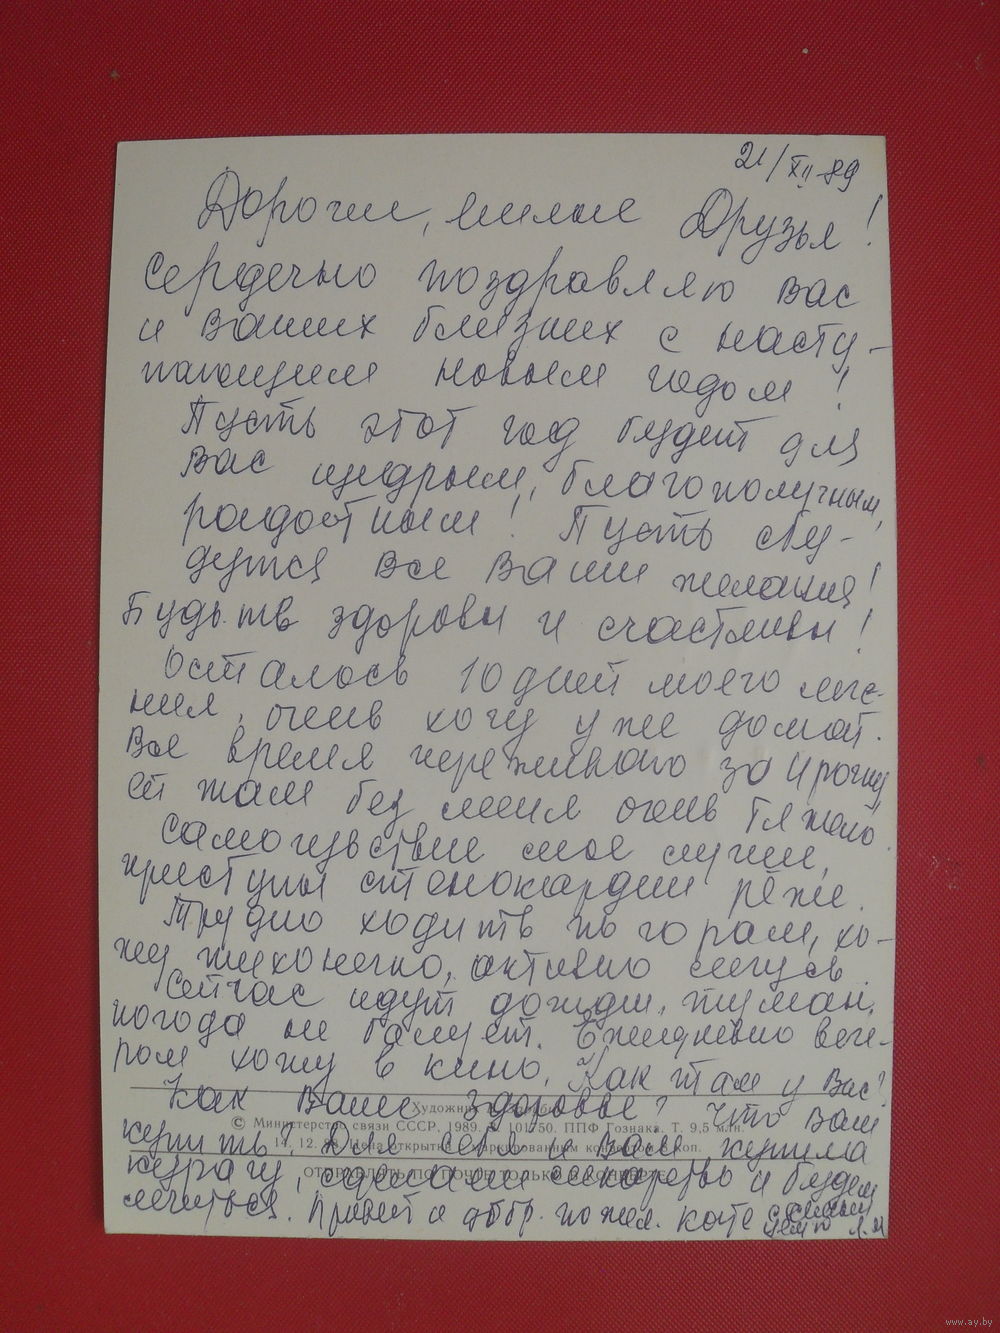 21/XII-89
Дорогие, милые Друзья!
Сердечно поздравляю Вас
и Ваших близких с насту-
пающим новым годом!
Пусть этот год будет для
Вас щедрым, благополучным,
радостным! Пусть сбу-
дутся все Ваши желания!
Будьте здоровы и счастливы!
Осталось 10 дней моего лече-
ния, очень хочу уже домой.
Все время переживаю за Ирочку
ей там без меня очень тяжело.
Самочувствие мое лучше,
приступы стенокардии реже.
Трудно ходить по горам, хо-
жу тихонечко, активно лечусь.
Сейчас идут дожди, туман,
погода не балует. Ежедневно вече-
ром хожу в кино. Как там у Вас?
Как Ваше здоровье? Что Вам
Художник
© Министерство связи СССР, 1989. 101750. ППФ Гознака. Т. 9,5 млн.
купить? Для себя и Вам купила
14. 12. маркированным коп.
курагу, сделаем лекарство и будем
ОТПРАВЛЯТЬ ПО ПОЧТЕ ТОЛЬКО В КОНВЕРТЕ
лечиться. Привет и добр. пожел. Кате с семьей
Целую Л.И
www.ay.by